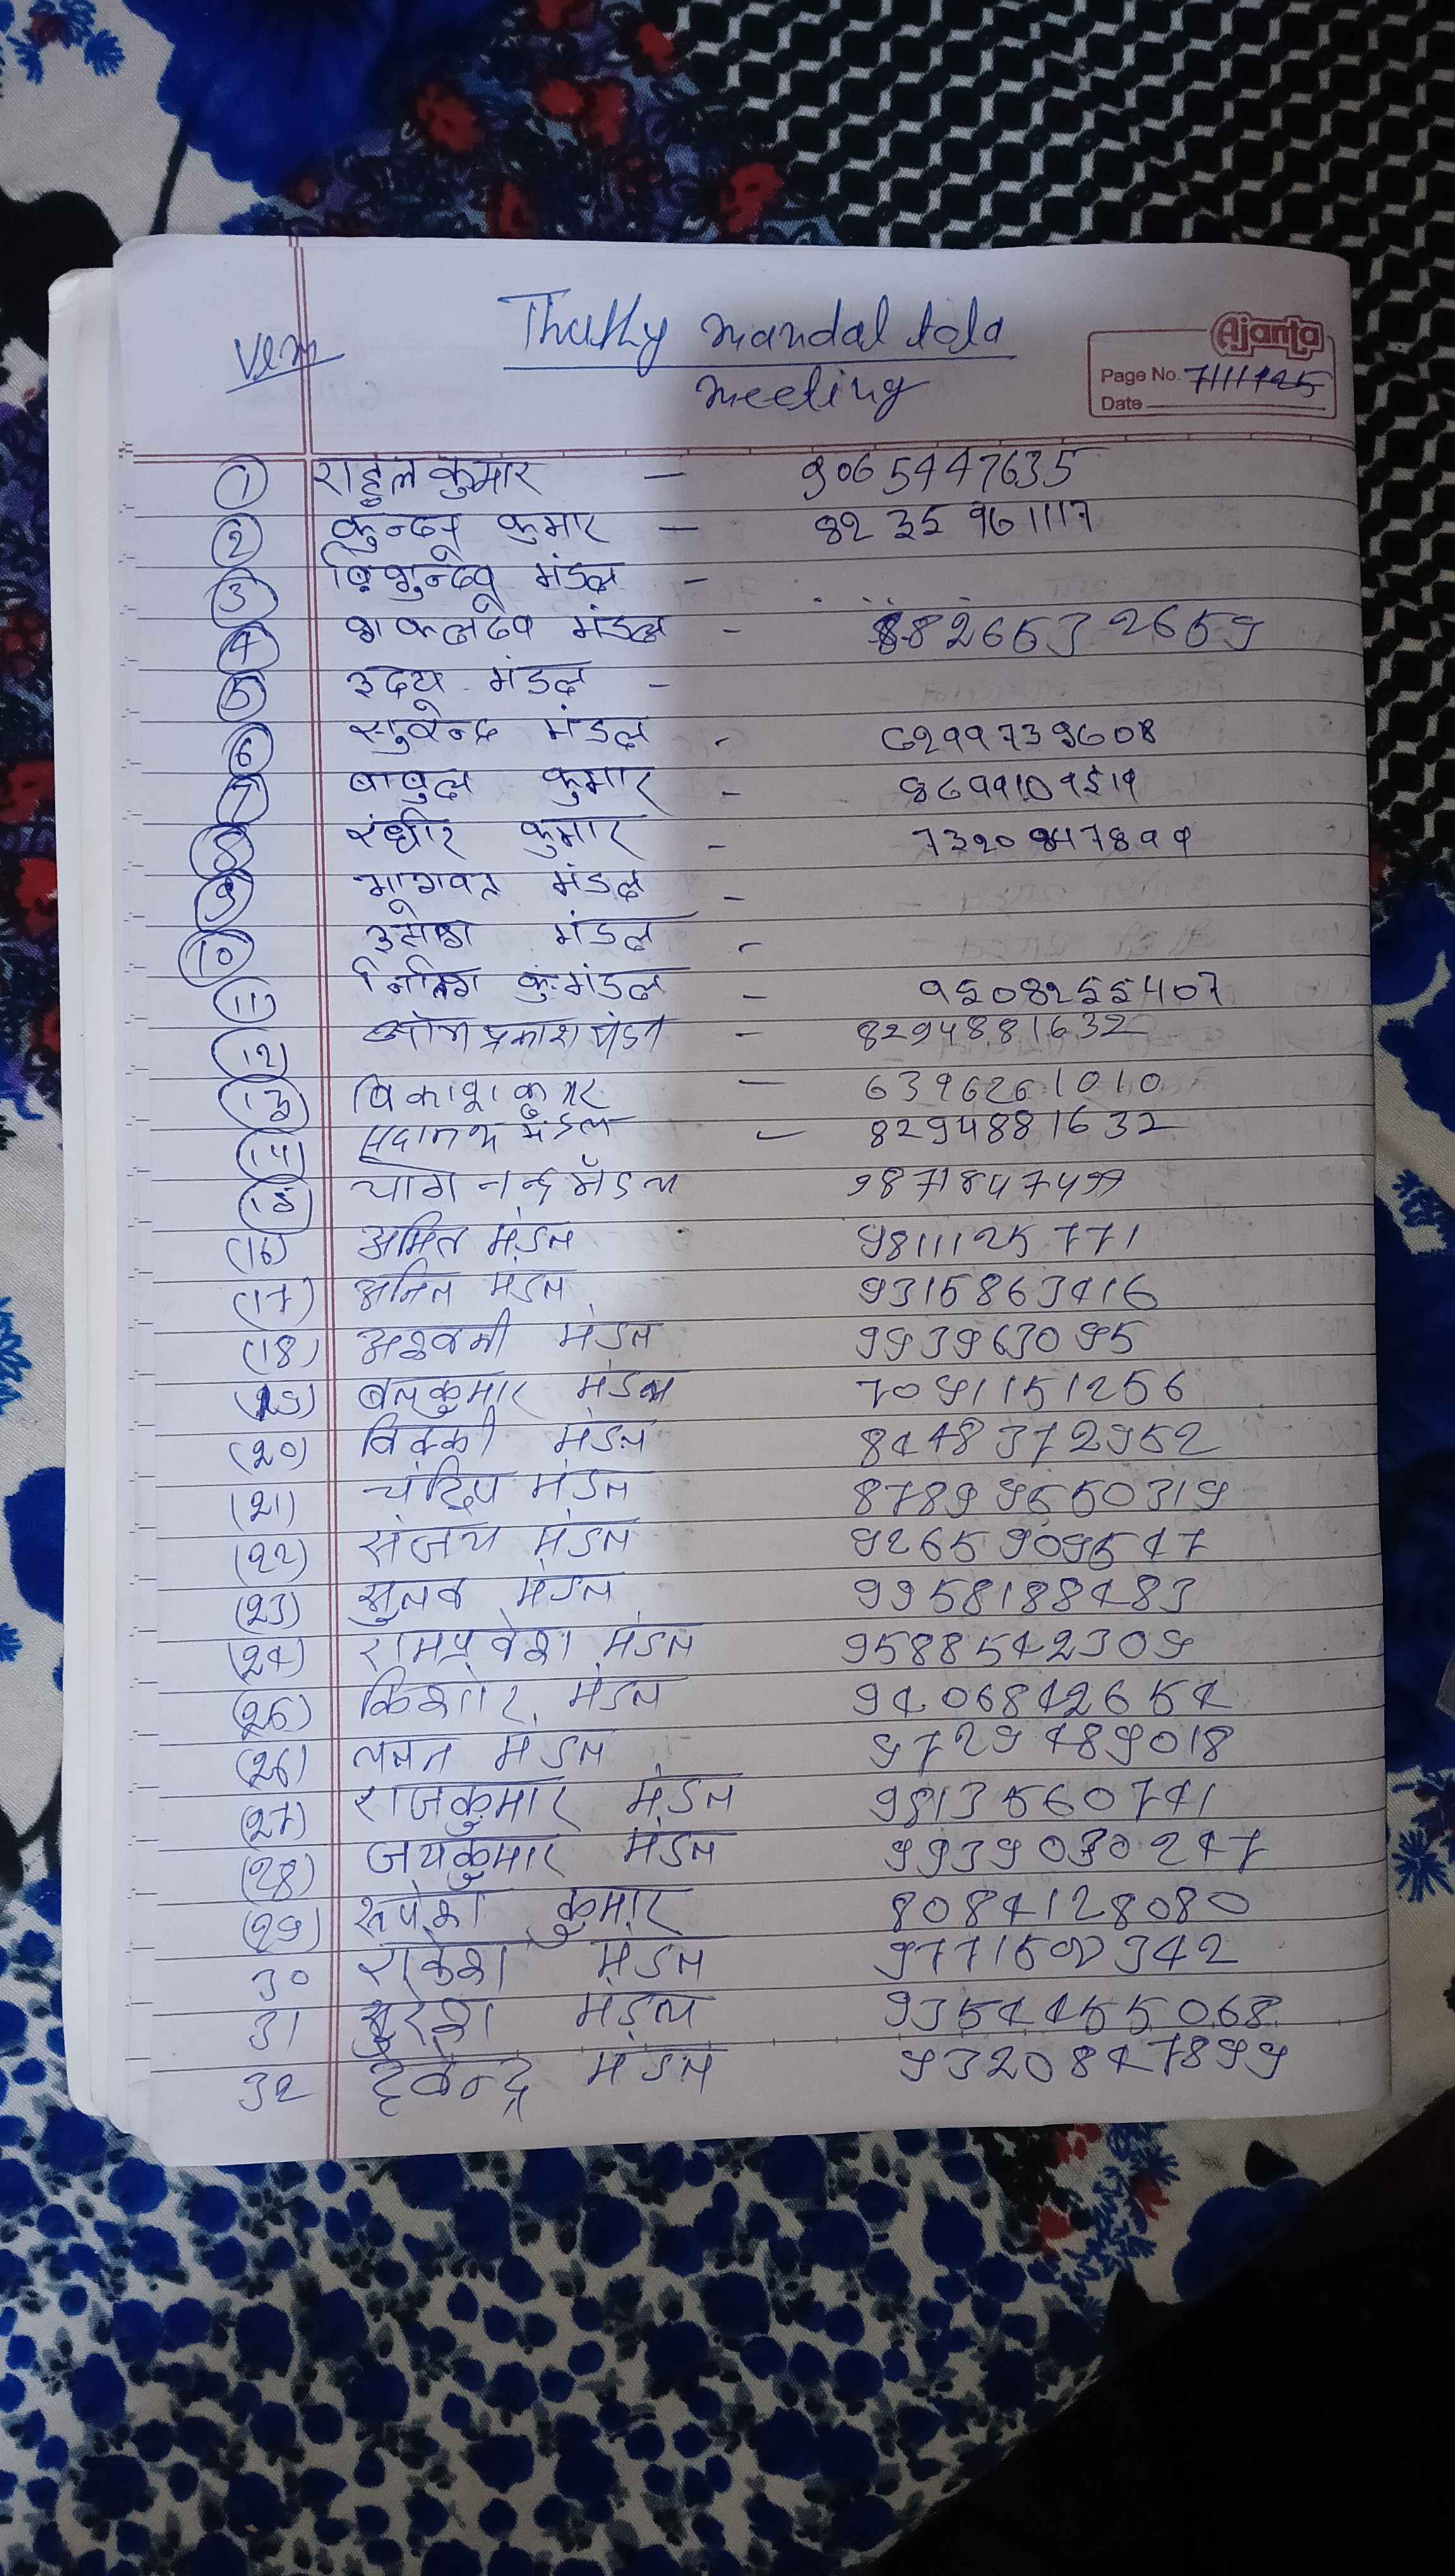 Thathy mandal tola
meeting
Ajanta
Page No. 7/11/25
Date
① राहुल कुमार — 9065447635
② कुन्दन कुमार — 8235961117
③ मंडल -
④ शकलदेव मंडल - 8826532659
⑤ उदय मंडल -
⑥ सुरेन्द्र मंडल - 6299739608
⑦ बाबुल कुमार - 8699109519
⑧ रंधीर कुमार - 7320847899
⑨ भागवत मंडल -
⑩ उमेश मंडल -
(11) नितिश कु. मंडल - 9508255407
(12) ओम प्रकाश मंडल - 8294881632
(13) विकाश कुमार — 6396261010
(14) सदानन्द मंडल - 8294881632
(15) योगेन्द्र मंडल 9871847499
(16) अमित मंडल 9811125771
(17) अनिल मंडल 9315863416
(18) अश्वनी मंडल 993963095
(19) बलकुमार मंडल 7091151256
(20) विक्की मंडल 8448372952
(21) मंडल 87899650319
(22) संजय मंडल 9265909547
(23) मंडल 9958188483
(24) रामप्रवेश मंडल 9588542309
(25) किशोर मंडल 9406842654
(26) ललन मंडल 9729489018
(27) राजकुमार मंडल 9813560741
(28) जयकुमार मंडल 9939030247
(29) रूपेश कुमार 8084128080
30 राकेश मंडल 9771502342
31 सुरेश मंडल 9354455068
32 देवेन्द्र मंडल 9320847899